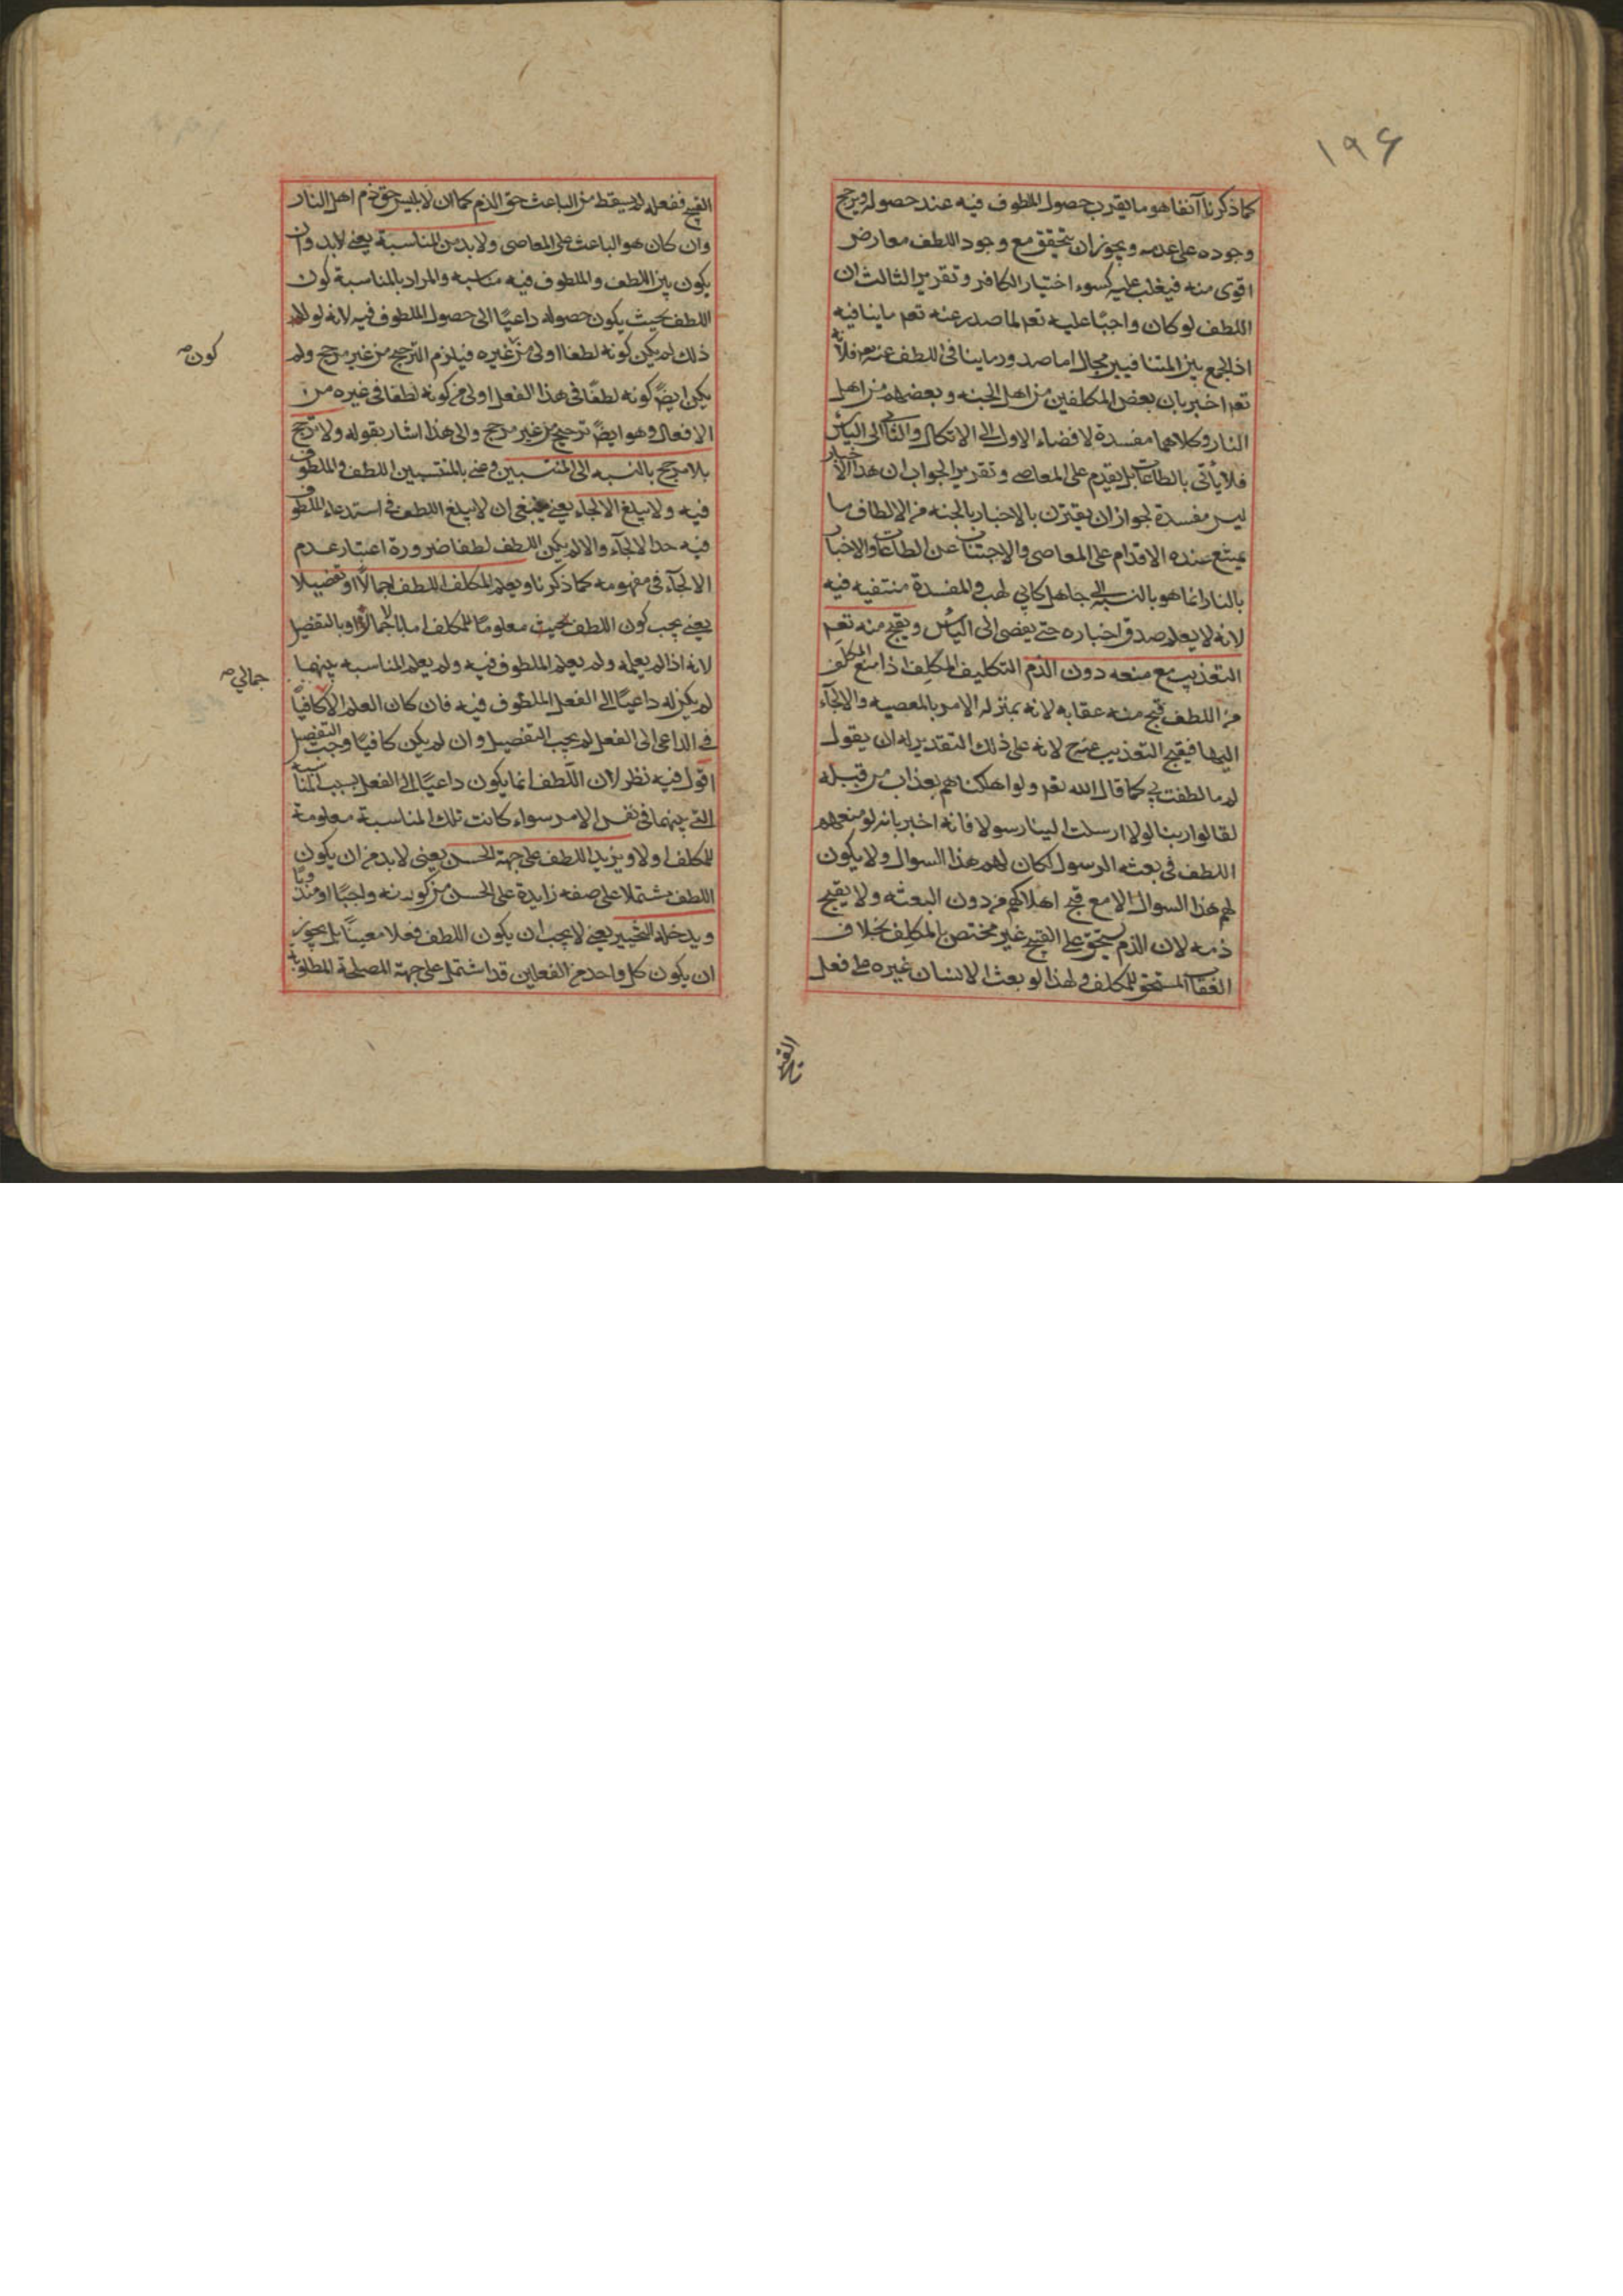 ١٩٤
كما ذكرنا آنفا هو ما يقرب حصول الملطوف فيه عند حصوله ويرجح
وجوده على عدمه ويجوز ان يتحقق مع وجود اللطف معارض
اقوى منه فيغلب عليه كسوء اختيار الكافر وتقرير الثالث ان
اللطف لو كان واجبًا عليه تعم لما صدر عنه تعم ما ينافيه
اذ الجمع بين المتنافيين محال اما صدور ما ينافى اللطف عنه تعم فلانه
تعم اخبر بان بعض المكلفين من اهل الجنه وبعضهم من اهل
النار وكلاهما مفسدة لافضاء الاول الى الاتكال والثانى الى الياس
فلا يأتى بالطاعات بل يقدم على المعاصى وتقرير الجواب ان هذا الاخبار
ليس مفسدة لجواز ان يقترن بالاخبار بالجنه من الالطاف ما
يمتنع عنده الاقدام على المعاصى والاجتناب عن الطاعات والاخبار
بالنار انما هو بالنسبة الى جاهل كابى لهب والمفسدة منتفيه فيه
لانه لا يعلم صدق اخباره حتى يفضى الى الياس ويقبح منه تعم
التعذيب مع منعه دون الذم التكليف المكلِف اذا منع المكلَف
من اللطف قبح منه عقابه لانه بمنزله الامر بالمعصيه والالجآء
اليها فيقبح التعذيب عنه ح لانه على ذلك التقدير له ان يقول
لم ما لطفت بى كما قال الله تعم ولو اهلكناهم بعذاب من قبله
لقالوا ربنا لولا ارسلت الينا رسولا فانه اخبر بانه لو منعهم
اللطف فى بعثه الرسول لكان لهم هذا السوال ولا يكون
لهم هذا السوال الا مع قبح اهلاكهم من دون البعثه ولا يقبح
ذمه لان الذم يستحق على القبيح غير مختص بالمكلف بخلاف
العقاب المستحق للمكلف ولهذا لو بعث الانسان غيره على فعل
القبيح
القبيح ففعله لم يسقط من الباعث حق الذم كما ان لابليس حق ذم اهل النار
وان كان هو الباعث على المعاصى ولا بد من المناسبة يعنى لابد وان
يكون بين اللطف والملطوف فيه مناسبه والمراد بالمناسبة كون
اللطف بحيث يكون حصوله داعيًا الى حصول الملطوف فيه لانه لولا
ذلك لم يكن كونه لطفا اولى من غيره فيلزم الترجيح من غير مرجح ولم
كون صح
يكن ايضً كونه لطفًا فى هذا الفعل اولى من كونه لطفا فى غيره من
الافعال وهو ايضً ترجيح من غير مرجح والى هذا اشار بقوله ولا ترجح
بلا مرجح بالنسبه الى المنتسبين وعنى بالمنتسبين اللطف والملطوف
فيه ولا يبلغ الالجاء يعنى ينبغى ان لا يبلغ اللطف فى استدعاء الملطوف
فيه حد الالجآء والا لم يكن اللطف لطفا ضرورة اعتبار عدم
الالجآء فى مفهومه كما ذكرنا ويعلم المكلف اللطف اجمالًا او تفصيلا
يعنى يجب كون اللطف بحيث معلومًا للمكلف اما بالاجمال او بالتفصيل
لانه اذا لم يعلمه ولم يعلم الملطوف فيه ولم يعلم المناسبه بينهما
جمالي صح
لم يكن له داعيًا الى الفعل الملطوف فيه فان كان العلم الا كافيًا
فى الداعى الى الفعل لم يجب التفصيل وان لم يكن كافيًا وجب التفصيل
اقول فيه نظر لان اللطف انما يكون داعيًا الى الفعل بسبب المناسبه
التى بينهما فى نفس الامر سواء كانت تلك المناسبة معلومة
للمكلف اولا ويزيد اللطف على جهة الحسن يعنى لا بد من ان يكون
اللطف مشتملا على صفه زايدة على الحسن من كونه واجبًا او مندوبًا
ويدخله التخيير يعنى لا يجب ان يكون اللطف فعلا معينًا بل يجوز
ان يكون كل واحد من الفعلين قد اشتمل على جهة المصلحة المطلوبة